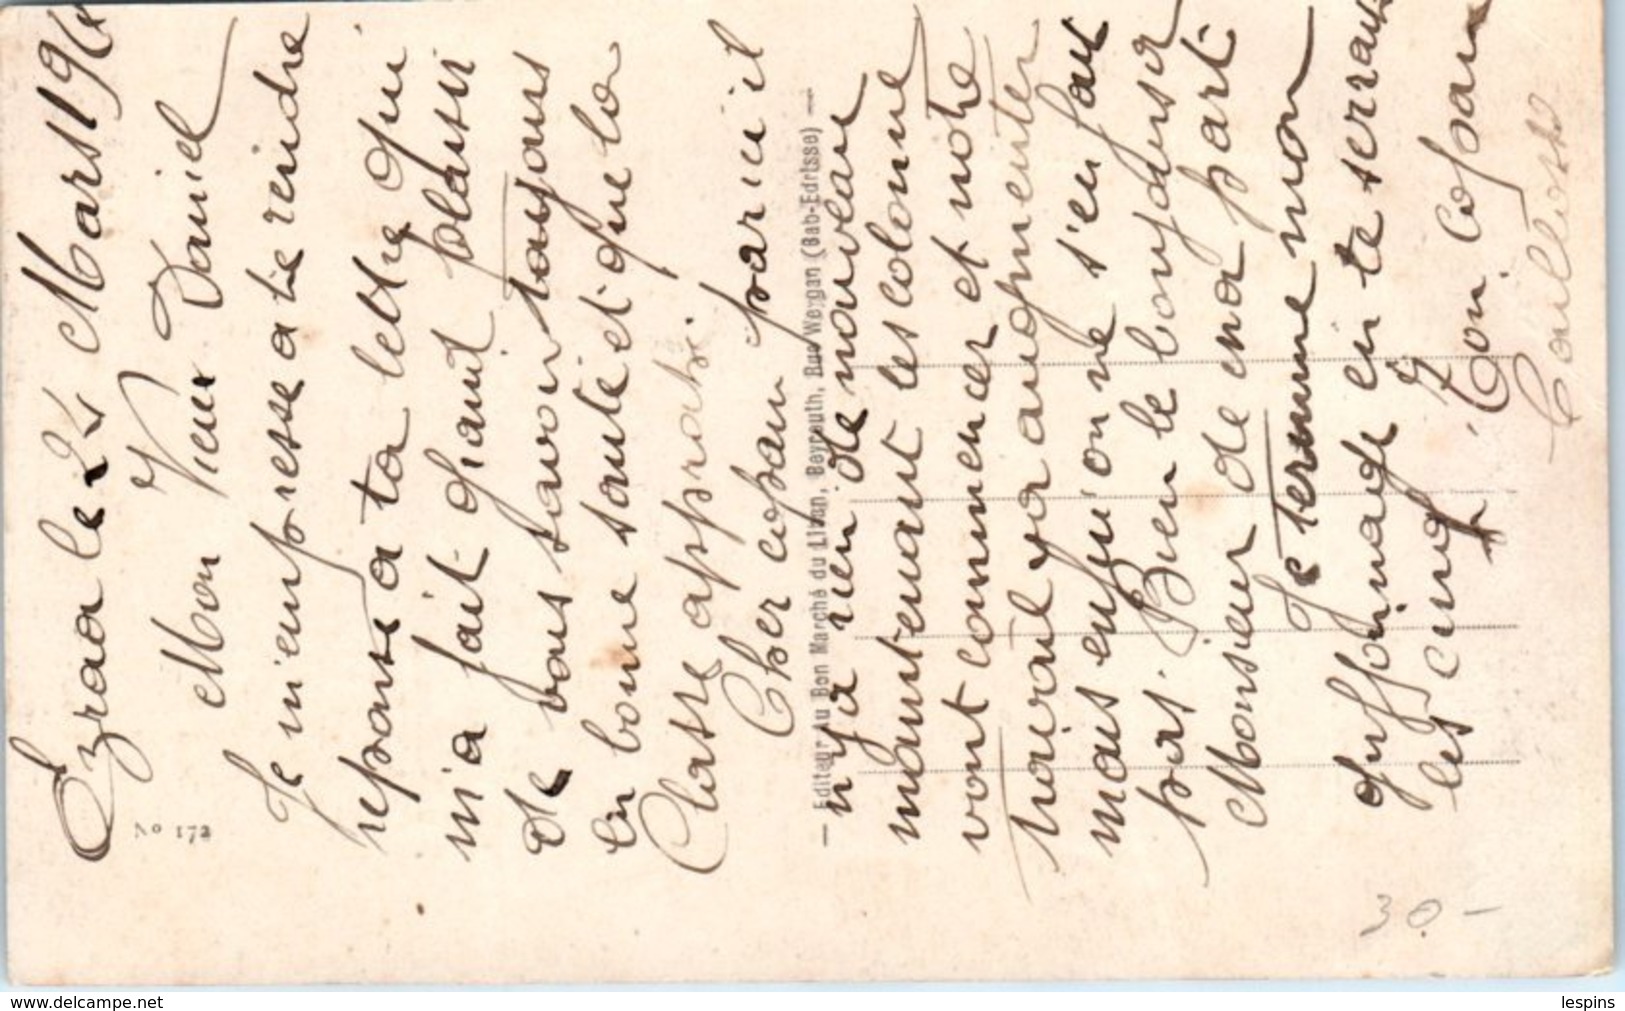 Ezraa le 25 Mars 192
Mon Vieux Daniel
Je m'empresse a te rendre
reponse a ta lettre qui
m'a fait grand plaisir
de vous savoir toujours
en bonne santé et que la
Classe approche.
Cher copain par ici il
n'y a rien de nouveau
maintenant les colonne
vont commencer et notre
travail va augmenter
mais enfin on ne s'en fait
pas. Bien le bonjour a
Monsieur de ma part
Je termine mon
griffonnage en te serrant
les cinq
Ton Copain
Caillosse
N° 172
— Editeur Au Bon Marché du Liban, Beyrouth, Rue Weygan (Bab-Edrisse) —
30.-
www.delcampe.net
lespins